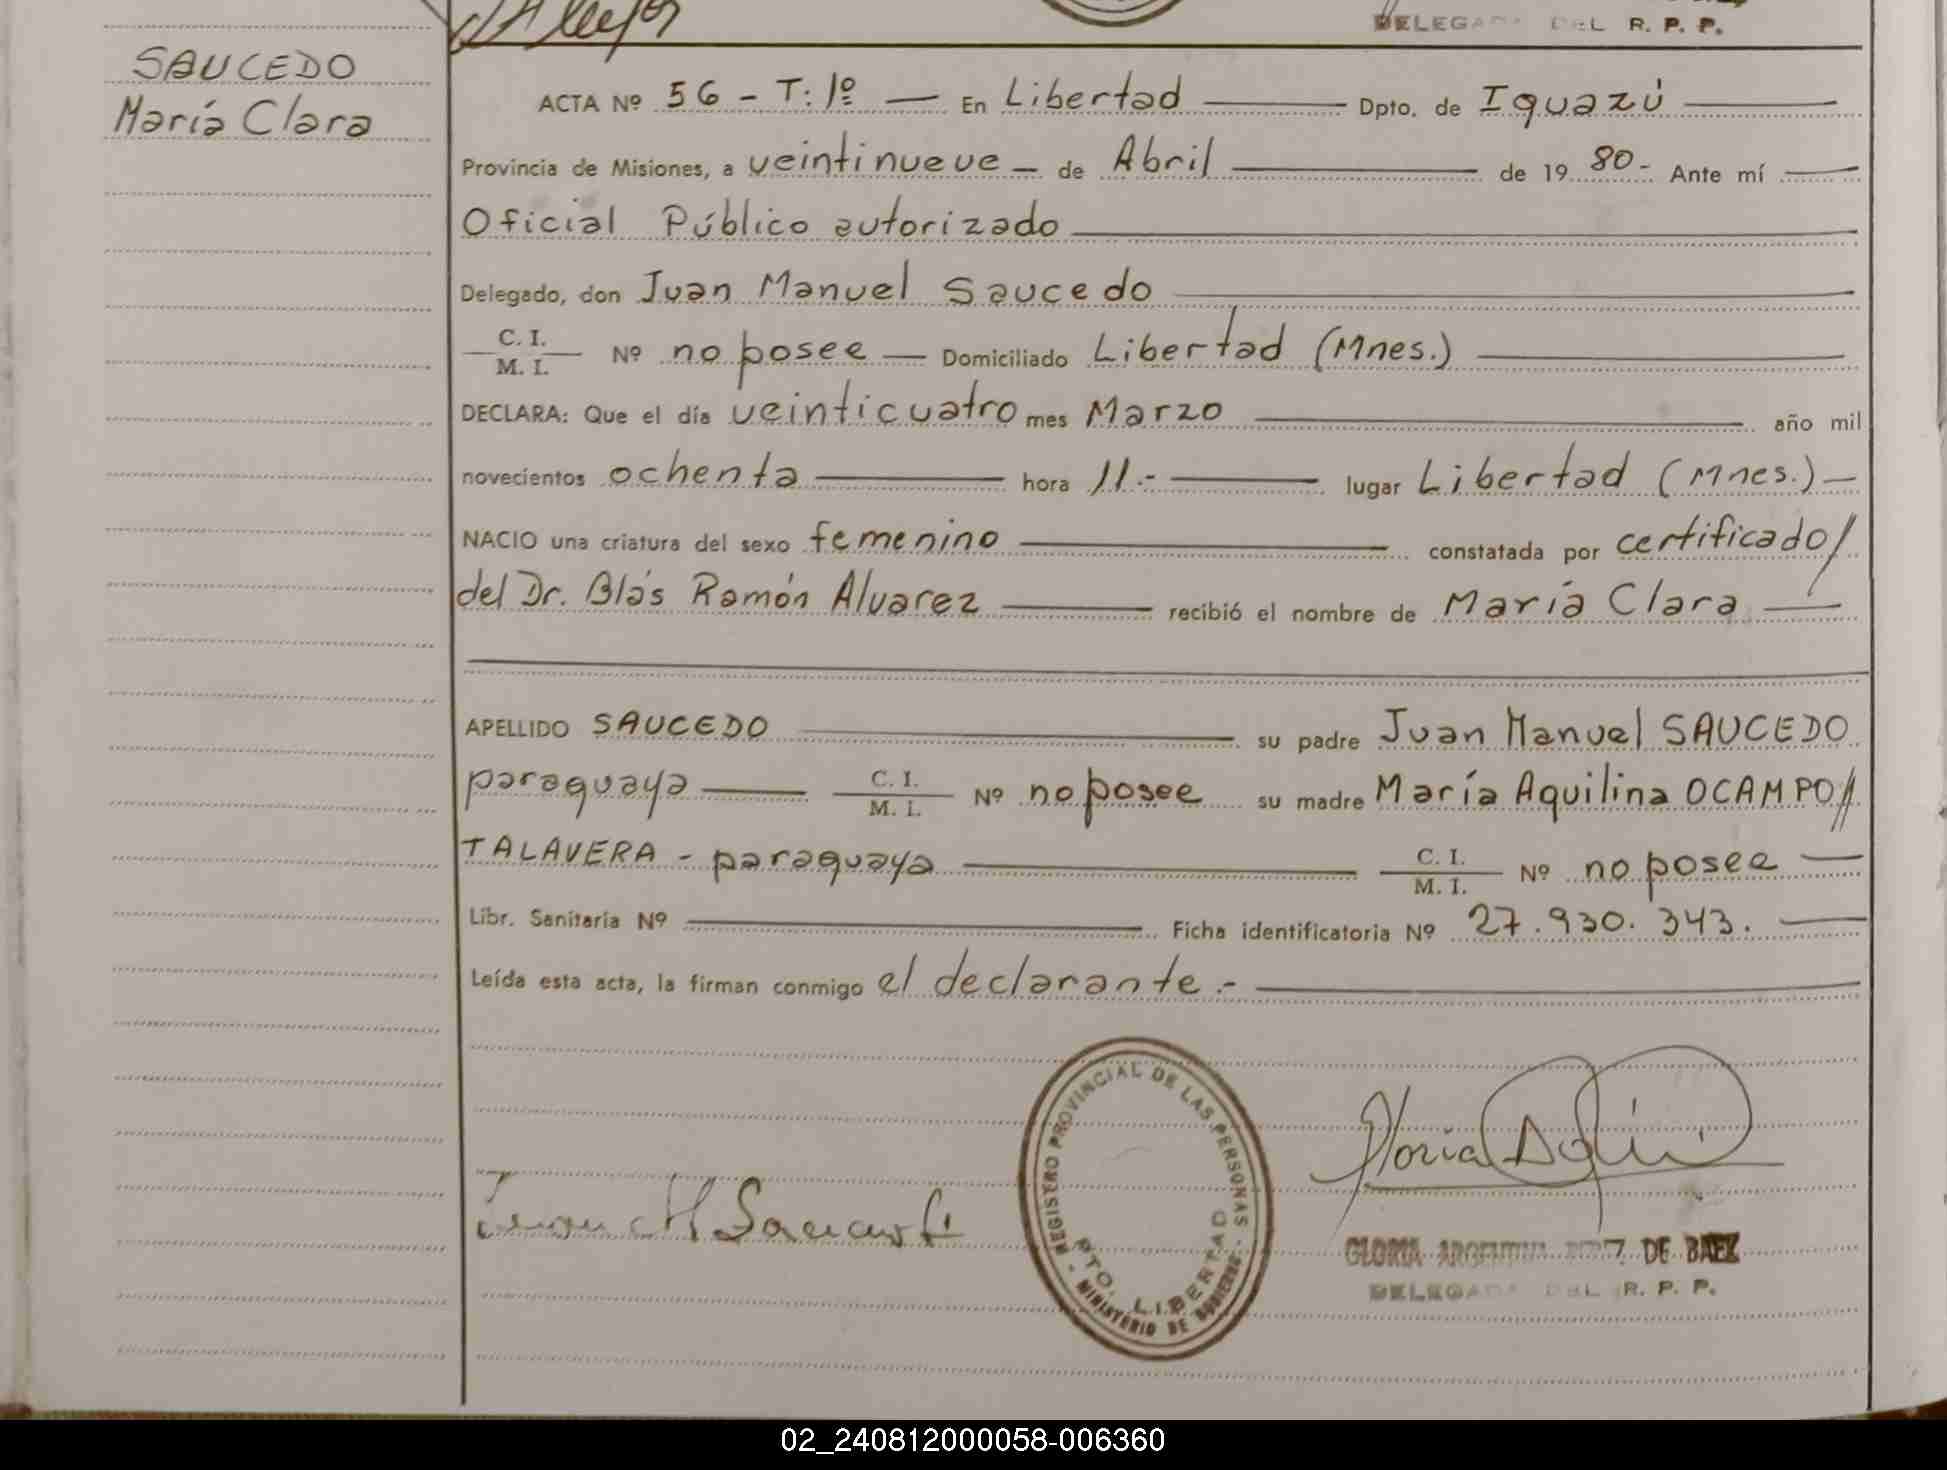 DELEGADA DEL R. P. P.
SAUCEDO
María Clara
ACTA Nº 56 - T: 1º — En Libertad — Dpto. de Iguazú —
Provincia de Misiones, a veintinueve — de Abril — de 19 80.- Ante mí —
Oficial Público autorizado —
Delegado, don Juan Manuel Saucedo —
C. I.
M. I. Nº no posee — Domiciliado Libertad (Mnes.) —
DECLARA: Que el día veinticuatro mes Marzo — año mil
novecientos ochenta — hora 11.- — lugar Libertad (Mnes.) —
NACIO una criatura del sexo femenino — constatada por certificado/
del Dr. Blás Ramón Alvarez — recibió el nombre de María Clara —
APELLIDO SAUCEDO — su padre Juan Manuel SAUCEDO
paraguaya — C. I.
M. I. Nº no posee su madre María Aquilina OCAMPO//
TALAVERA - paraguaya — C. I.
M. I. Nº no posee —
Libr. Sanitaria Nº — Ficha identificatoria Nº 27.930.343. —
Leída esta acta, la firman conmigo el declarante.- —
REGISTRO PROVINCIAL DE LAS PERSONAS - MINISTERIO DE GOBIERNO -
PTO. LIBERTAD
Gloria
GLORIA ARGENTINA DE BAEZ
DELEGADA DEL R. P. P.
02_240812000058-006360